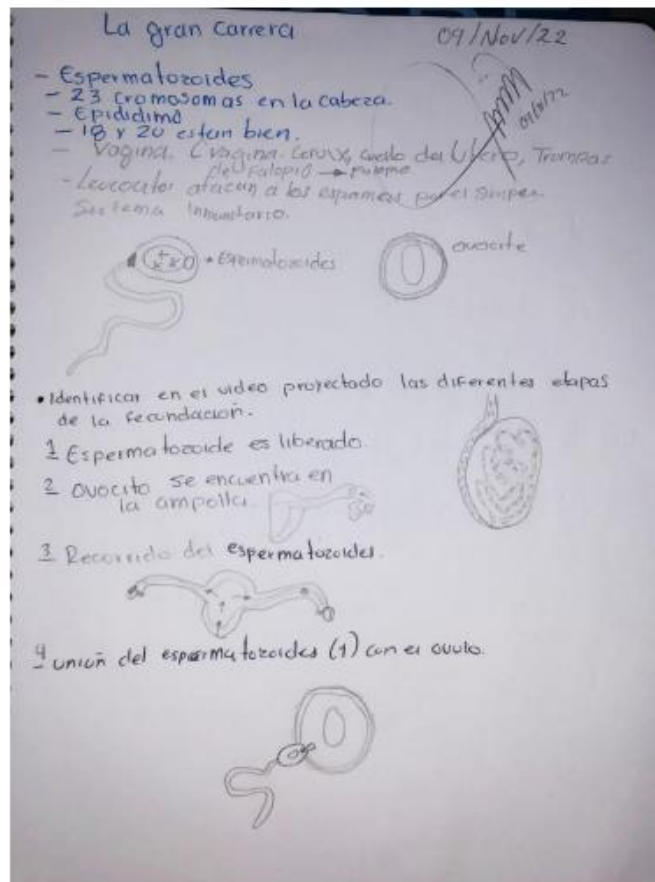 La gran Carrera
09/Nov/22
- Espermatozoides
- 23 cromosomas en la cabeza.
- Epididimo
- 18 y 20 estan bien.
- Vagina. (vagina. Cervix, cuello del Utero, Trompas
de Falopio →
- Leucocitos atacan a los espermas por el
Sistema Inmunitario.
• Espermatozoides
ovocite
• Identificar en el video proyectado las diferentes etapas
de la fecundación.
1 Espermatozoide es liberado.
2 Ovocito se encuentra en
la ampolla.
3 Recorrido del espermatozoides.
4 unión del espermatozoides (1) con el ovulo.